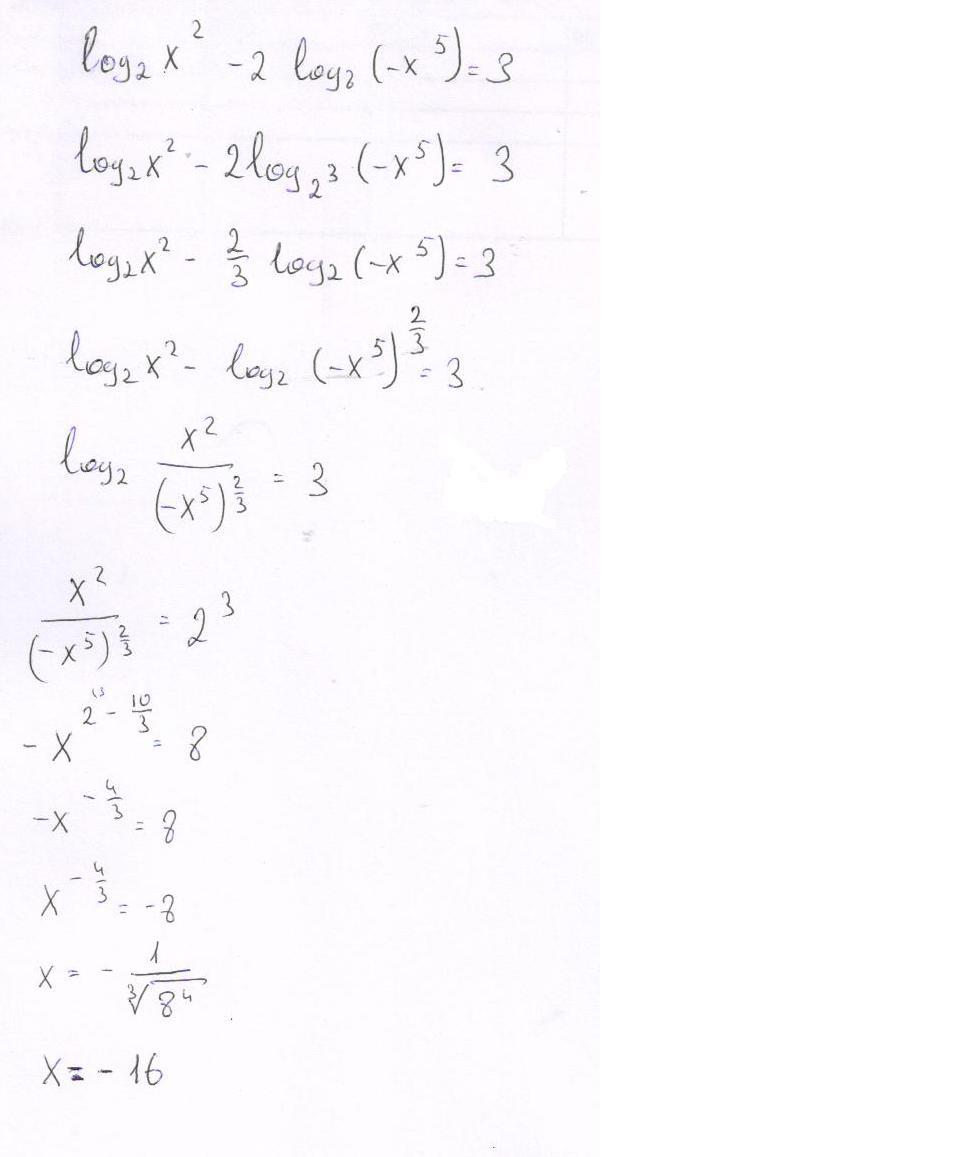 log₂ x² - 2 log₈ (-x⁵) = 3
log₂ x² - 2 log₂³ (-x⁵) = 3
log₂ x² - 2/3 log₂ (-x⁵) = 3
log₂ x² - log₂ (-x⁵)^(2/3) = 3
log₂ x²/(-x⁵)^(2/3) = 3
x²/(-x⁵)^(2/3) = 2³
-x^(2 - 10/3) = 8
-x^(-4/3) = 8
x^(-4/3) = -8
x = - 1/∛8⁴
x = - 16